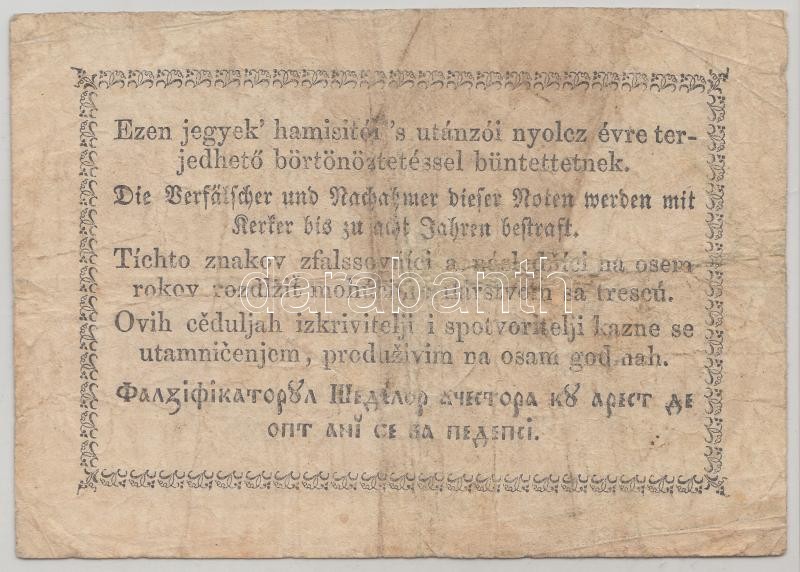 Ezen jegyek’ hamisitói ’s utánzói nyolcz évre ter-
jedhető börtönöztetéssel büntettetnek.
Die Verfälscher und Nachahmer dieser Noten werden mit
Kerker bis zu acht Jahren bestraft.
Tíchto znakov zfalssovníci a na osem
rokov sa trescú.
darabanth
Ovih cěduljah izkrivitelji i spotvoritelji kazne se
utamničenjem, produživim na osam godinah.
Фалꙅіфікаторꙋл Шеділор ачестора кꙋ арест де
опт анĭ се ва педепсі.